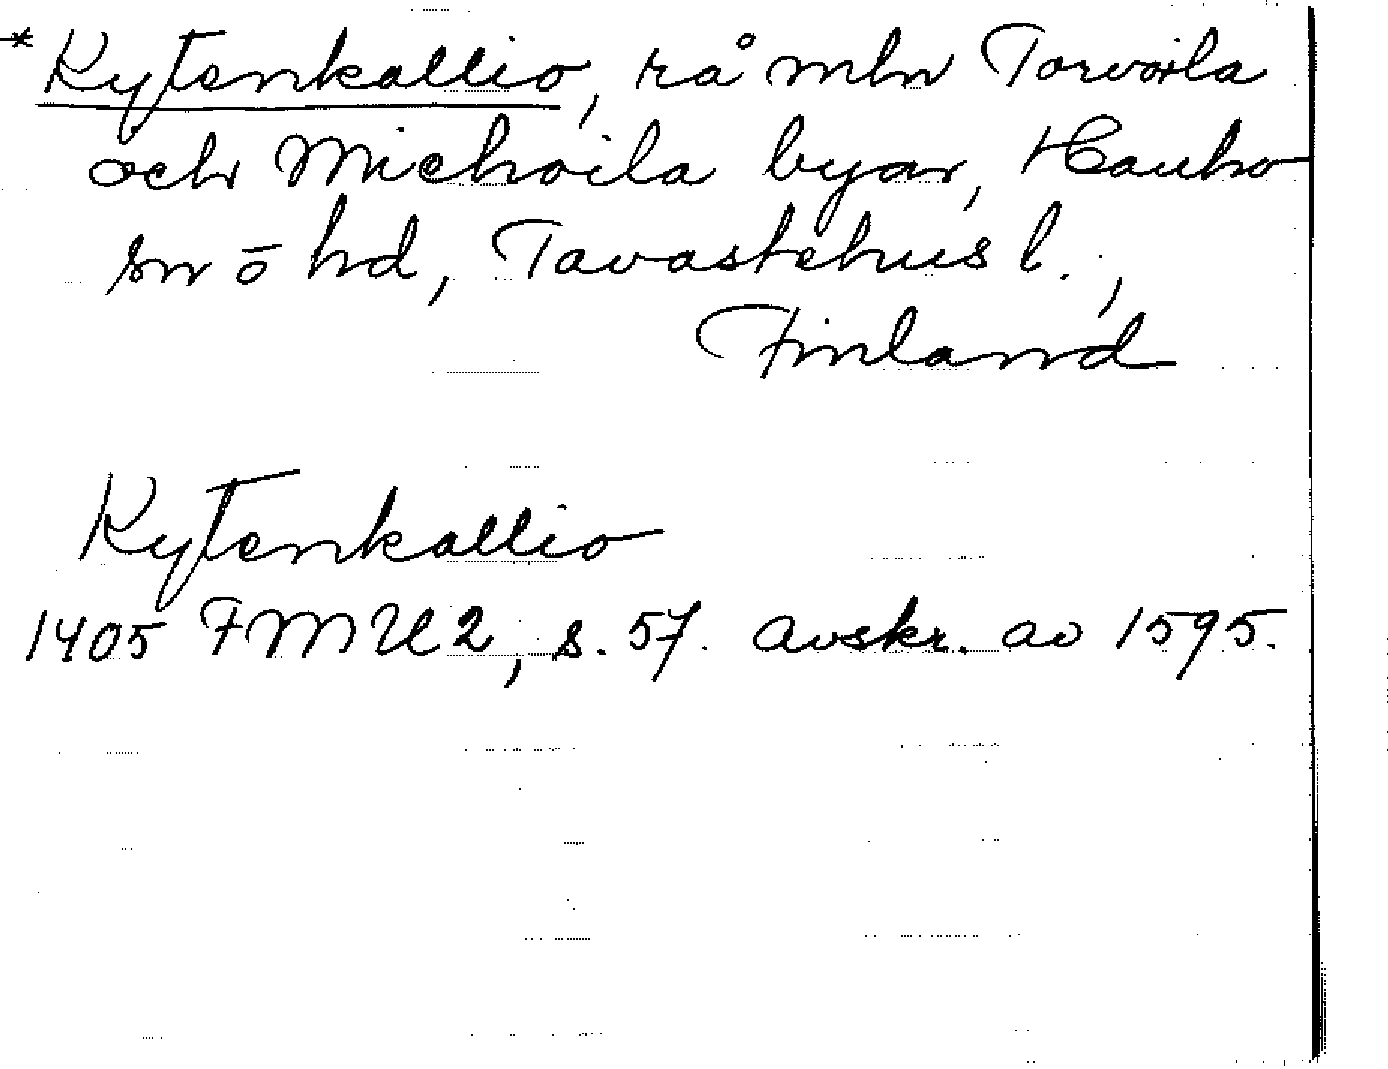 * Kytenkallio, rå mln Torvoila
och Michoila byar, Hauho
sn o hd, Tavastehus l.,
Finland
Kytenkallio
1405 FMU 2, s. 57. Avskr. av 1595.